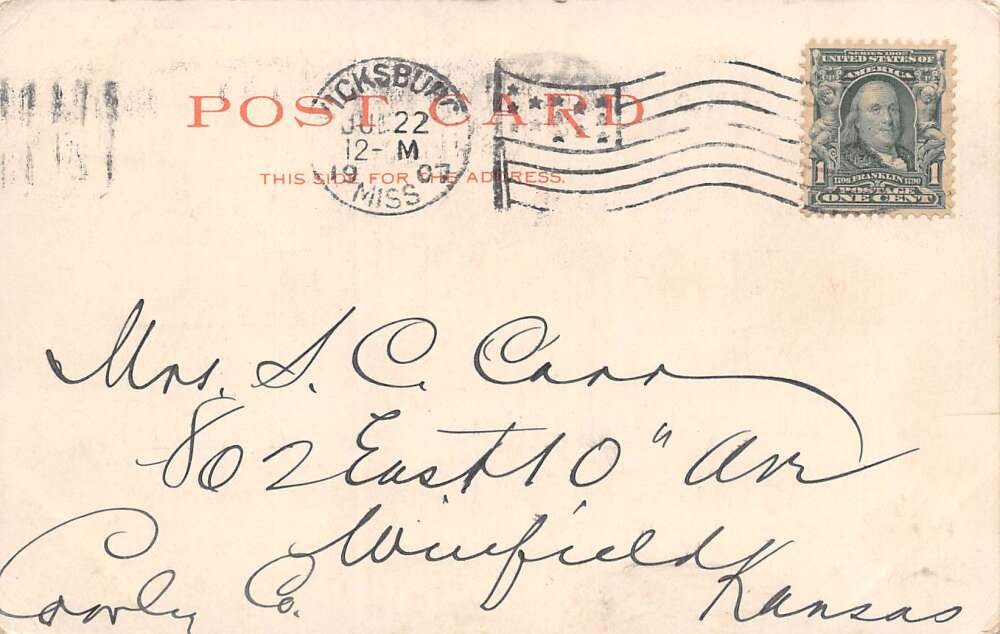 POST CARD
THIS SIDE FOR THE ADDRESS.
VICKSBURG
JUL 22
12- M
1907
MISS
SERIES 1902
UNITED STATES OF
AMERICA
1706 FRANKLIN 1790
1 POSTAGE 1
ONE CENT
Mrs. S. C. Carr
802 East 10" Ave
Winfield
Cowly Co. Kansas